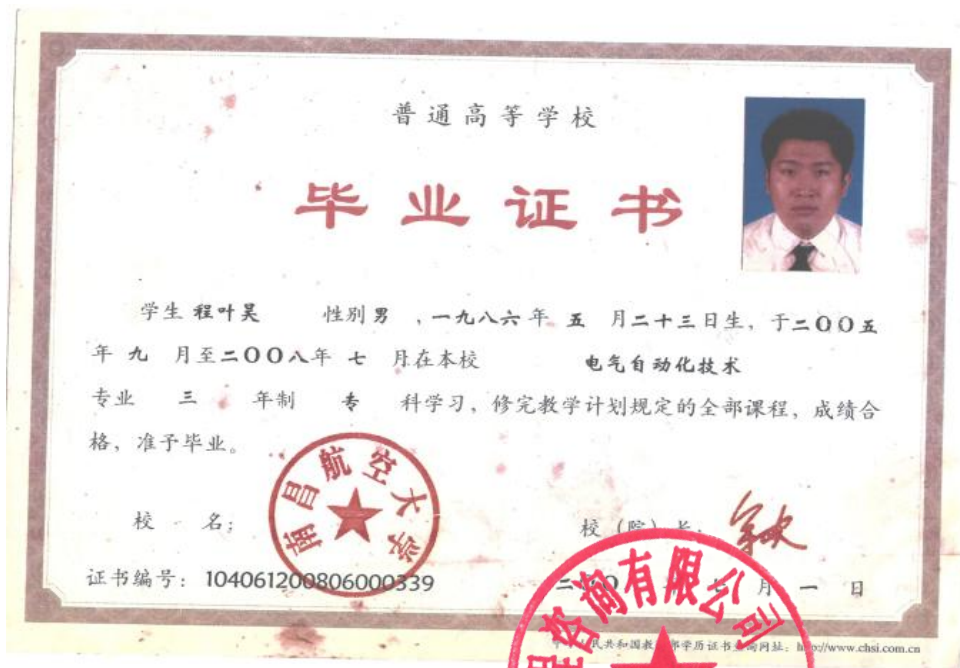 普通高等学校
毕业证书
学生 程叶昊 性别 男 ，一九八六 年 五 月二十三日生，于二〇〇五
年 九 月至二〇〇八年 七 月在本校 电气自动化技术
专业 三 年制 专 科学习，修完教学计划规定的全部课程，成绩合
格，准予毕业。
南昌航空大学
校 名：
校（院）长：
证书编号：104061200806000339
月 一 日
咨询有限公司
民共和国教 部学历证书 询网址：http://www.chsi.com.cn